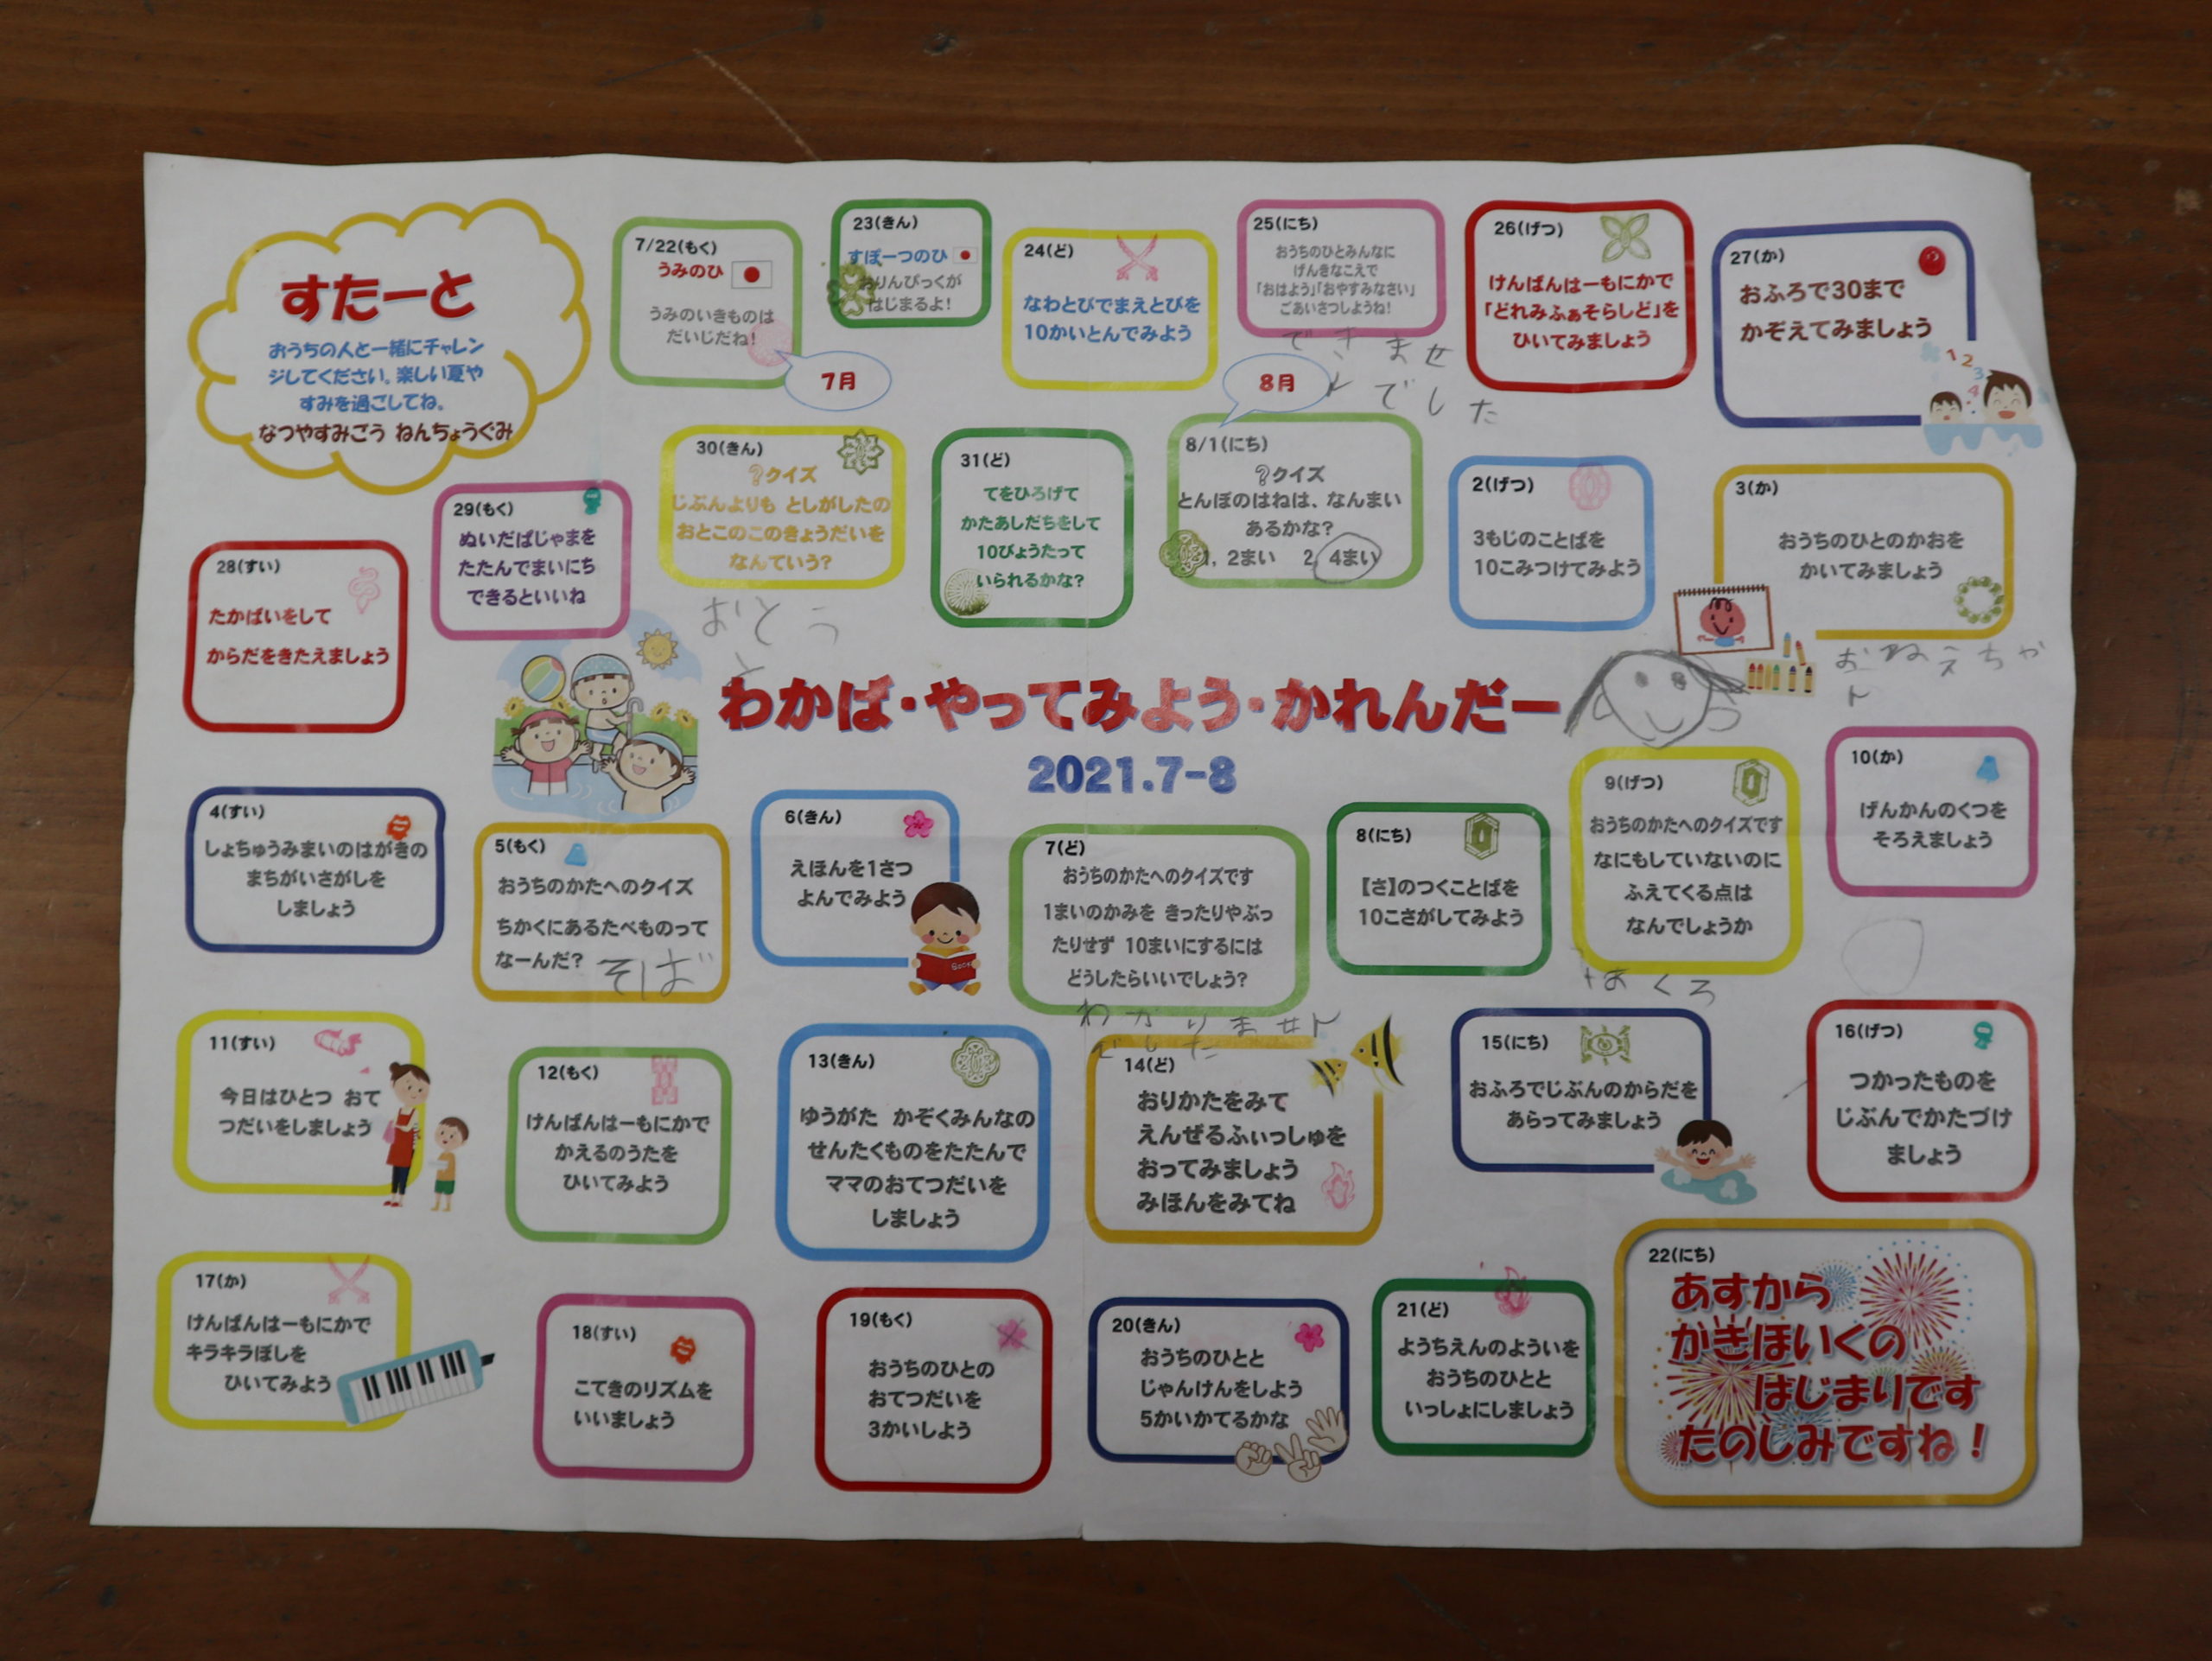 すたーと
おうちの人と一緒にチャレン
ジしてください。楽しい夏や
すみを過ごしてね。
なつやすみごう ねんちょうぐみ
7/22(もく)
うみのひ
うみのいきものは
だいじだね!
7月
23(きん)
すぽーつのひ
おりんぴっくが
はじまるよ!
24(ど)
なわとびでまえとびを
10かいとんでみよう
25(にち)
おうちのひとみんなに
げんきなこえで
「おはよう」「おやすみなさい」
ごあいさつしようね!
できませ
んでした
26(げつ)
けんばんはーもにかで
「どれみふぁそらしど」を
ひいてみましょう
27(か)
おふろで30まで
かぞえてみましょう
1 2 3 4
28(すい)
たかばいをして
からだをきたえましょう
29(もく)
ぬいだぱじゃまを
たたんでまいにち
できるといいね
30(きん)
?クイズ
じぶんよりも としがしたの
おとこのこのきょうだいを
なんていう?
おとう
と
31(ど)
てをひろげて
かたあしだちをして
10びょうたって
いられるかな?
8月
8/1(にち)
?クイズ
とんぼのはねは、なんまい
あるかな?
1, 2まい 2, 4まい
2(げつ)
3もじのことばを
10こみつけてみよう
3(か)
おうちのひとのかおを
かいてみましょう
おねえちゃ
ん
わかば・やってみよう・かれんだー
2021.7-8
4(すい)
しょちゅうみまいのはがきの
まちがいさがしを
しましょう
5(もく)
おうちのかたへのクイズ
ちかくにあるたべものって
なーんだ? そば
6(きん)
えほんを1さつ
よんでみよう
7(ど)
おうちのかたへのクイズです
1まいのかみを きったりやぶっ
たりせず 10まいにするには
どうしたらいいでしょう?
わかりません
でした
8(にち)
【さ】のつくことばを
10こさがしてみよう
9(げつ)
おうちのかたへのクイズです
なにもしていないのに
ふえてくる点は
なんでしょうか
ほくろ
10(か)
げんかんのくつを
そろえましょう
11(すい)
今日はひとつ おて
つだいをしましょう
12(もく)
けんばんはーもにかで
かえるのうたを
ひいてみよう
13(きん)
ゆうがた かぞくみんなの
せんたくものをたたんで
ママのおてつだいを
しましょう
14(ど)
おりかたをみて
えんぜるふぃっしゅを
おってみましょう
みほんをみてね
15(にち)
おふろでじぶんのからだを
あらってみましょう
16(げつ)
つかったものを
じぶんでかたづけ
ましょう
17(か)
けんばんはーもにかで
キラキラぼしを
ひいてみよう
18(すい)
こてきのリズムを
いいましょう
19(もく)
おうちのひとの
おてつだいを
3かいしよう
20(きん)
おうちのひとと
じゃんけんをしよう
5かいかてるかな
21(ど)
ようちえんのよういを
おうちのひとと
いっしょにしましょう
22(にち)
あすから
かきほいくの
はじまりです
たのしみですね!